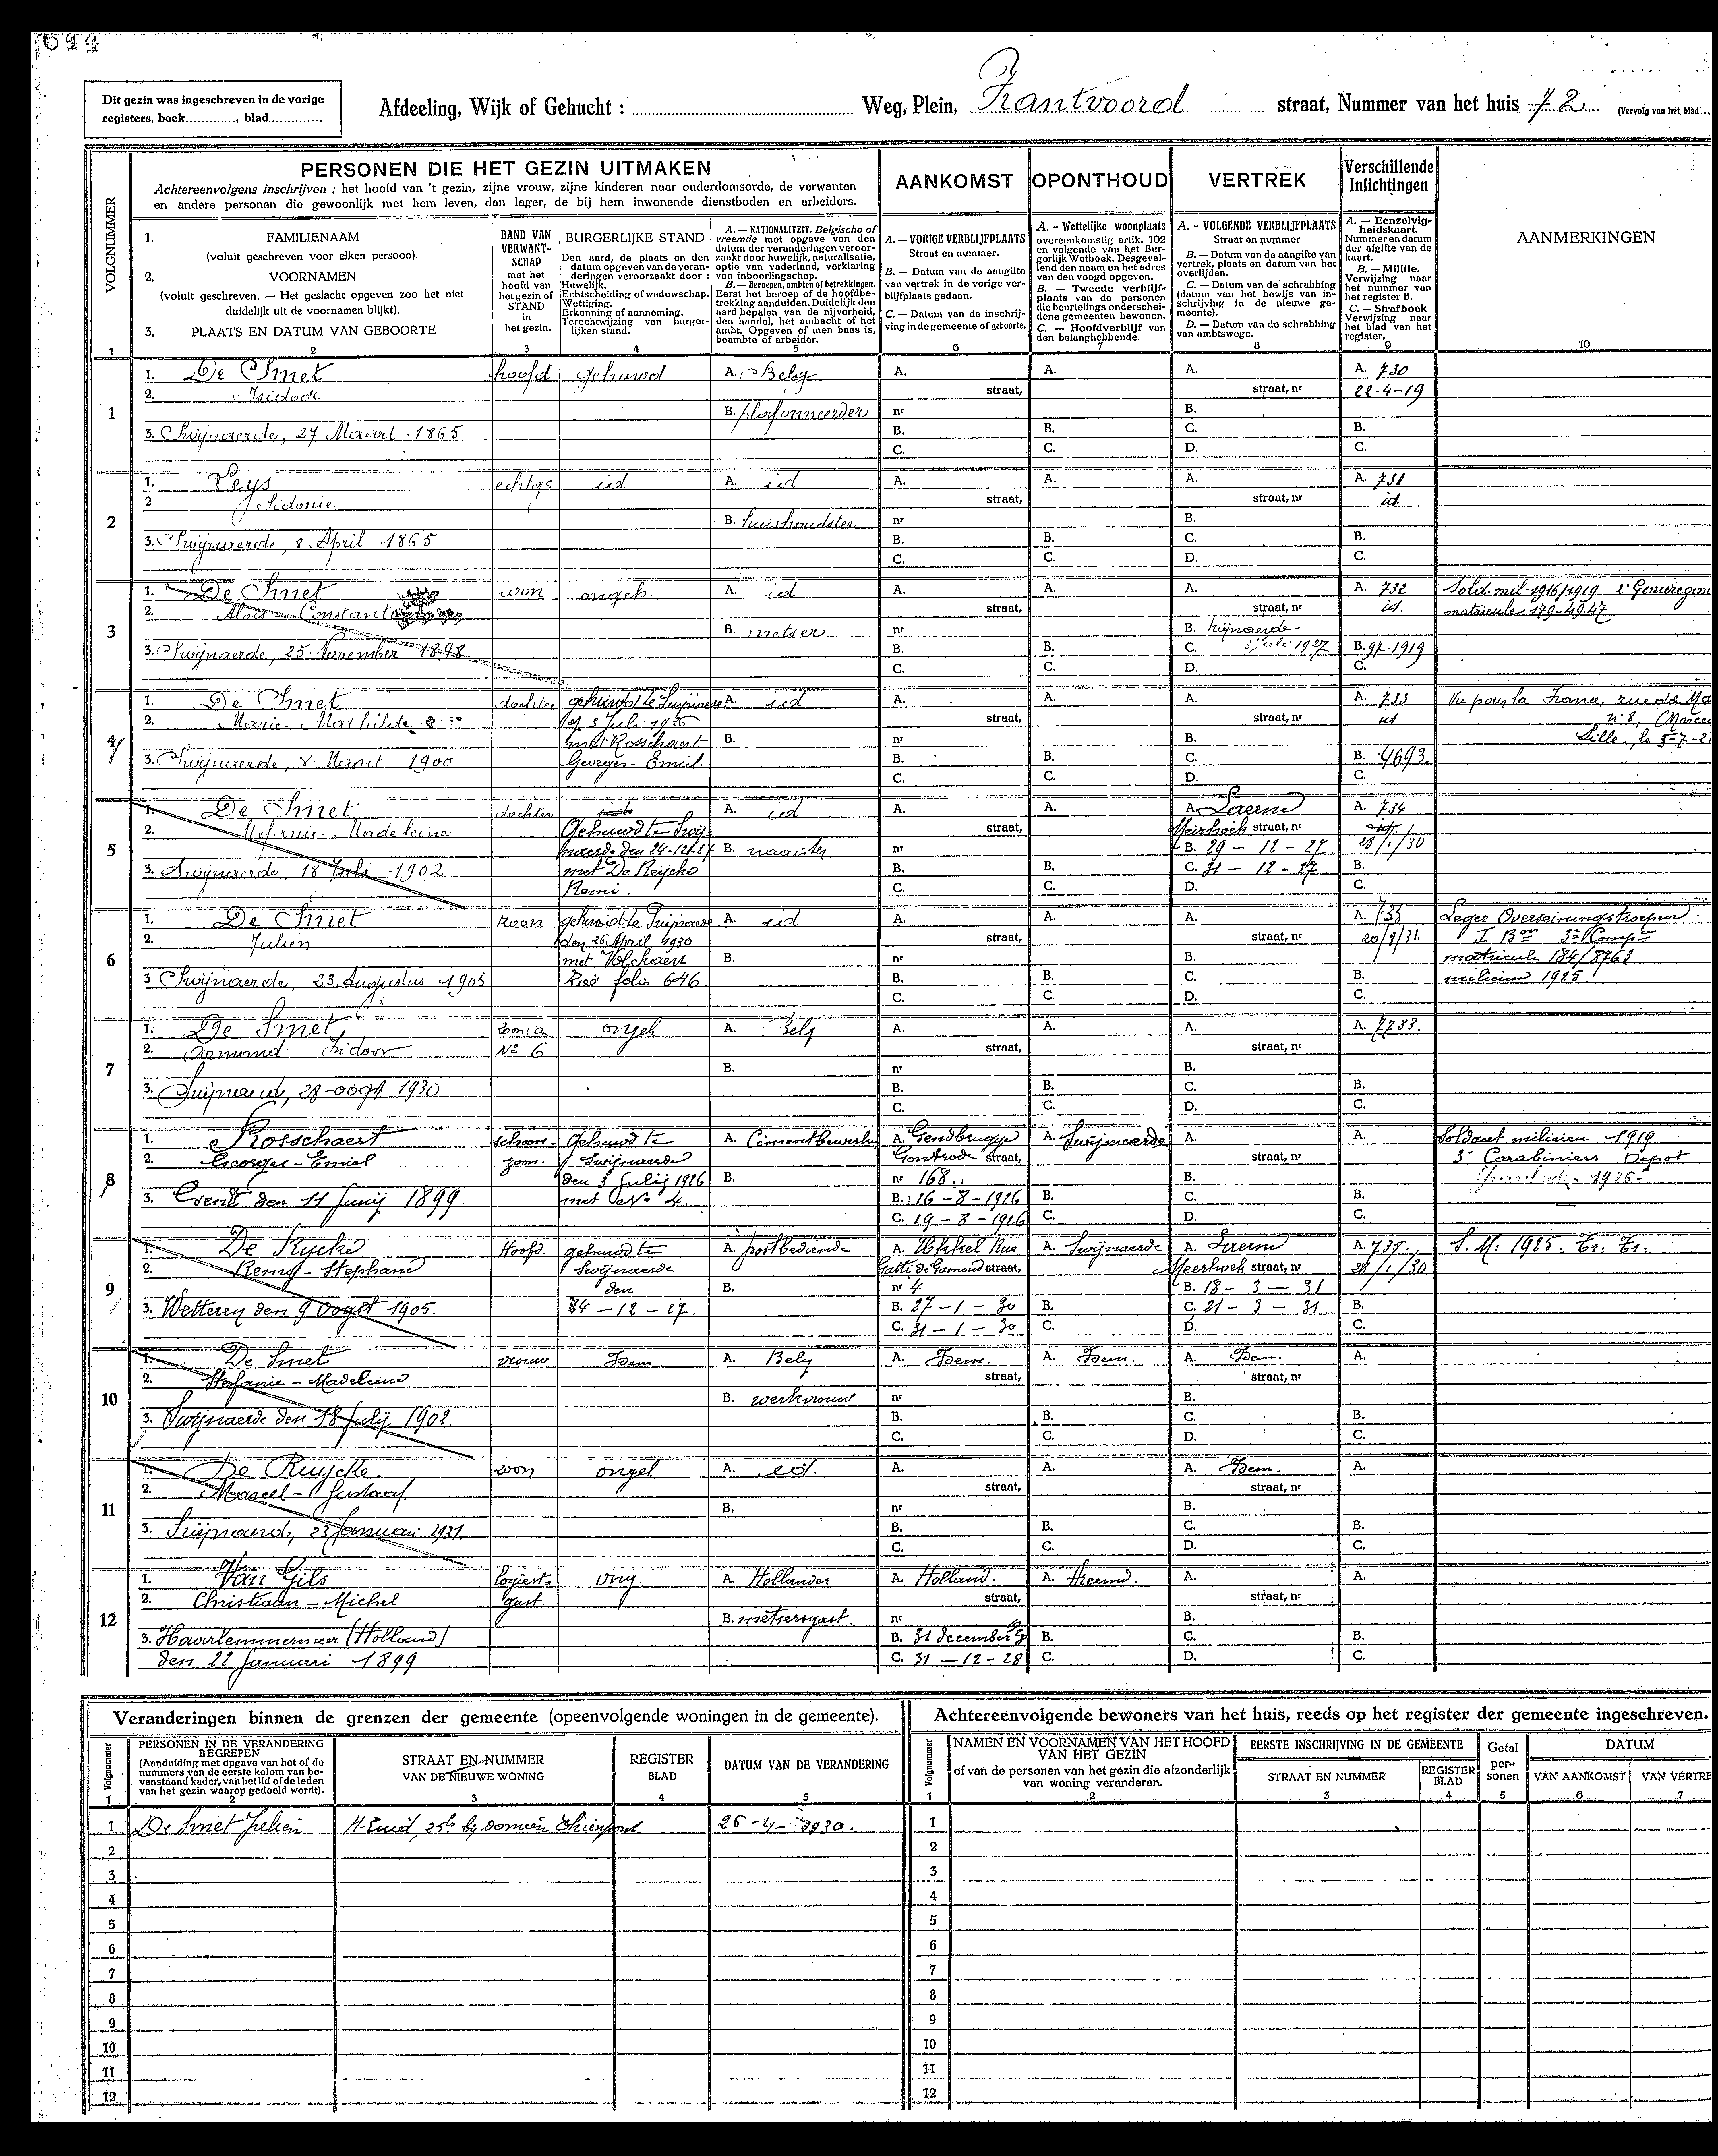 644
Dit gezin was ingeschreven in de vorige
registers, boek............, blad..............
Afdeeling, Wijk of Gehucht : ........ Weg, Plein, Frantvoord straat, Nummer van het huis 72 (Vervolg van het blad...
PERSONEN DIE HET GEZIN UITMAKEN
Achtereenvolgens inschrijven : het hoofd van 't gezin, zijne vrouw, zijne kinderen naar ouderdomsorde, de verwanten
en andere personen die gewoonlijk met hem leven, dan lager, de bij hem inwonende dienstboden en arbeiders.
AANKOMST
OPONTHOUD
VERTREK
Verschillende
Inlichtingen
VOLGNUMMER
1. FAMILIENAAM
(voluit geschreven voor elken persoon).
2. VOORNAMEN
(voluit geschreven. — Het geslacht opgeven zoo het niet
duidelijk uit de voornamen blijkt).
3. PLAATS EN DATUM VAN GEBOORTE
BAND VAN
VERWANT-
SCHAP
met het
hoofd van
het gezin of
STAND
in
het gezin.
BURGERLIJKE STAND
Den aard, de plaats en den
datum opgeven van de veran-
deringen veroorzaakt door :
Huwelijk.
Echtscheiding of weduwschap.
Wettiging.
Erkenning of aanneming.
Terechtwijzing van burger-
lijken stand.
A. — NATIONALITEIT. Belgische of
vreemde met opgave van den
datum der veranderingen veroor-
zaakt door huwelijk, naturalisatie,
optie van vaderland, verklaring
van inboorlingschap.
B. — Beroepen, ambten of betrekkingen.
Eerst het beroep of de hoofdbe-
trekking aanduiden. Duidelijk den
aard bepalen van de nijverheid,
den handel, het ambacht of het
ambt. Opgeven of men baas is,
beambte of arbeider.
A. — VORIGE VERBLIJFPLAATS
Straat en nummer.
B. — Datum van de aangifte
van vertrek in de vorige ver-
blijfplaats gedaan.
C. — Datum van de inschrij-
ving in de gemeente of geboorte.
A. - Wettelijke woonplaats
overeenkomstig artik. 102
en volgende van het Bur-
gerlijk Wetboek. Desgeval-
lend den naam en het adres
van den voogd opgeven.
B. — Tweede verblijf-
plaats van de personen
die beurtelings onderschei-
dene gemeenten bewonen.
C. — Hoofdverblijf van
den belanghebbende.
A. - VOLGENDE VERBLIJFPLAATS
Straat en nummer
B. — Datum van de aangifte van
vertrek, plaats en datum van het
overlijden.
C. — Datum van de schrabbing
(datum van het bewijs van in-
schrijving in de nieuwe ge-
meente).
D. — Datum van de schrabbing
van ambtswege.
A. — Eenzelvig-
heidskaart.
Nummer en datum
der afgifte van de
kaart.
B. — Militie.
Verwijzing naar
het nummer van
het register B.
C. — Strafboek
Verwijzing naar
het blad van het
register.
AANMERKINGEN
1 2 3 4 5 6 7 8 9 10
1
1. De Smet hoofd gehuwd A. Belg A. A. A. A. 730
2. Isidoor straat, straat, nr 22-4-19
B. plafonneerder nr B.
3. Swijnaerde, 27 Maart 1865 B. B. C. B.
C. C. D. C.
2
1. Leys echtge id A. id A. A. A. A. 731
2 Sidonie. straat, straat, nr id.
B. huishoudster nr B.
3. Swijnaerde, 8 April 1865 B. B. C. B.
C. C. D. C.
3
1. De Smet zoon ongeh. A. id A. A. A. A. 732 Sold. mil 1916/1919 2e Genieregim
2. Alois Constant straat, straat, nr id. matricule 179-49.47
B. metser nr B. Swijnaerde
3. Swijnaerde, 25 November 1898 B. B. C. 3 juli 1927 B. 97-1919
C. C. D. C.
4
1. De Smet dochter gehuwd te Swijnaerde A. id A. A. A. A. 733 Vu pour la France, rue de Ma
2. Marie Mathilde den 3 Juli 1926 straat, straat, nr id n° 8,
met Rosschaert B. nr B. Lille, le 5-7-2
3. Swijnaerde, 8 Maart 1900 Georges-Emiel. B. B. C. B. 4693.
C. C. D. C.
5
1. De Smet dochter A. id A. A. A. Laerne A. 734
2. Stefanie Madeleine Gehuwd te Swij- straat, Meirhoek straat, nr id
naerde den 24-12-27 B. naaister nr B. 29 - 12 - 27. 28/1/30
3. Swijnaerde, 18 Juli 1902 met De Reijcke B. B. C. 31 - 12 - 27. B.
Remi. C. C. D. C.
6
1. De Smet zoon gehuwd te Swijnaerde A. id A. A. A. A. 735 Leger
2. Julien den 26 April 1930 straat, straat, nr 20/8/31. I Bon 3e Compie
met B. nr B. matricule 184/8763
3 Swijnaerde, 23 Augustus 1905 Zie folio 646 B. B. C. B. milicien 1925.
C. C. D. C.
7
1. De Smet, zoon van ongeh A. Belg A. A. A. A. 7733.
2. Armand Isidoor No 6 straat, straat, nr
B. nr B.
3. Swijnaerde, 28-oogst 1930 B. B. C. B.
C. C. D. C.
8
1. Rosschaert schoon- Gehuwd te A. Cimentbewerker A. Gendbrugge A. Swijnaerde A. A. Soldaat milicien 1919
2. Georges-Emiel zoon. Swijnaerde Gontrode straat, straat, nr 3e Carabiniers Depot
den 3 Julij 1926 B. nr 168. B.
3. Gent den 11 Junij 1899. met No 4. B. 16 - 8 - 1926 B. C. B.
C. 19 - 8 - 1926 C. D. C.
9
1. De Rycke Hoofd. gehuwd te A. postbediende A. Ukkel Rue A. Swijnaerde A. Laerne A. 735. S. M: 1925. Tr. Tr.
2. Remy-Stephane Swijnaerde Gatti de Gamond straat, Meerhoek straat, nr 28/1/30
den B. nr 4 B. 18 - 3 - 31
3. Wetteren den 9 Oogst 1905. 24 - 12 - 27. B. 27 - 1 - 30 B. C. 21 - 3 - 31 B.
C. 31 - 1 - 30 C. D. C.
10
1. De Smet vrouw Idem. A. Belg A. Idem. A. Idem. A. Idem. A.
2. Stefanie - Madeleine straat, straat, nr
B. werkvrouw nr B.
3. Swijnaerde den 18 Julij 1902. B. B. C. B.
C. C. D. C.
11
1. De Ruycke. zoon ongeh A. id. A. A. A. Idem. A.
2. Marcel-Gustaaf straat, straat, nr
B. nr B.
3. Swijnaerde, 23 Januari 1931. B. B. C. B.
C. C. D. C.
12
1. Van Gils logiest- ong. A. Hollander A. Holland. A. A. A.
2. Christiaan - Michel gast. straat, straat, nr
B. metsersgast. nr B.
3. Haarlemmermeer (Holland) B. 31 december 28 B. C. B.
den 22 Januari 1899 C. 31 - 12 - 28 C. D. C.
Veranderingen binnen de grenzen der gemeente (opeenvolgende woningen in de gemeente).
Volgnummer
PERSONEN IN DE VERANDERING
BEGREPEN
(Aanduiding met opgave van het of de
nummers van de eerste kolom van bo-
venstaand kader, van het lid of de leden
van het gezin waarop gedoeld wordt).
STRAAT EN NUMMER
VAN DE NIEUWE WONING
REGISTER
BLAD
DATUM VAN DE VERANDERING
1 2 3 4 5
1 De Smet Julien 26-4-1930.
2
3
4
5
6
7
8
9
10
11
12
Achtereenvolgende bewoners van het huis, reeds op het register der gemeente ingeschreven.
Volgnummer
NAMEN EN VOORNAMEN VAN HET HOOFD
VAN HET GEZIN
of van de personen van het gezin die afzonderlijk
van woning veranderen.
EERSTE INSCHRIJVING IN DE GEMEENTE
STRAAT EN NUMMER
REGISTER
BLAD
Getal
per-
sonen
DATUM
VAN AANKOMST
VAN VERTRE
1 2 3 4 5 6 7
1
2
3
4
5
6
7
8
9
10
11
12